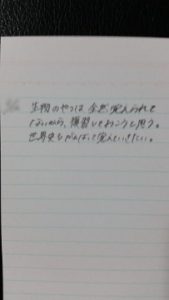 生物のやつは全然覚えられて
ないから、復習しとかないとと思う。
世界史もがんばって覚えていきたい。